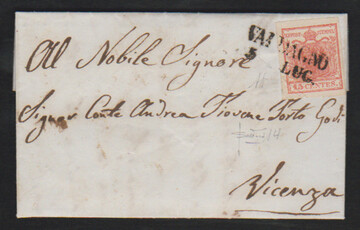 VALDAGNO
5
LUG.
15 CENTES.
Al Nobile Signore
Signor Conte Andrea Piovene Porto Godi
Vicenza